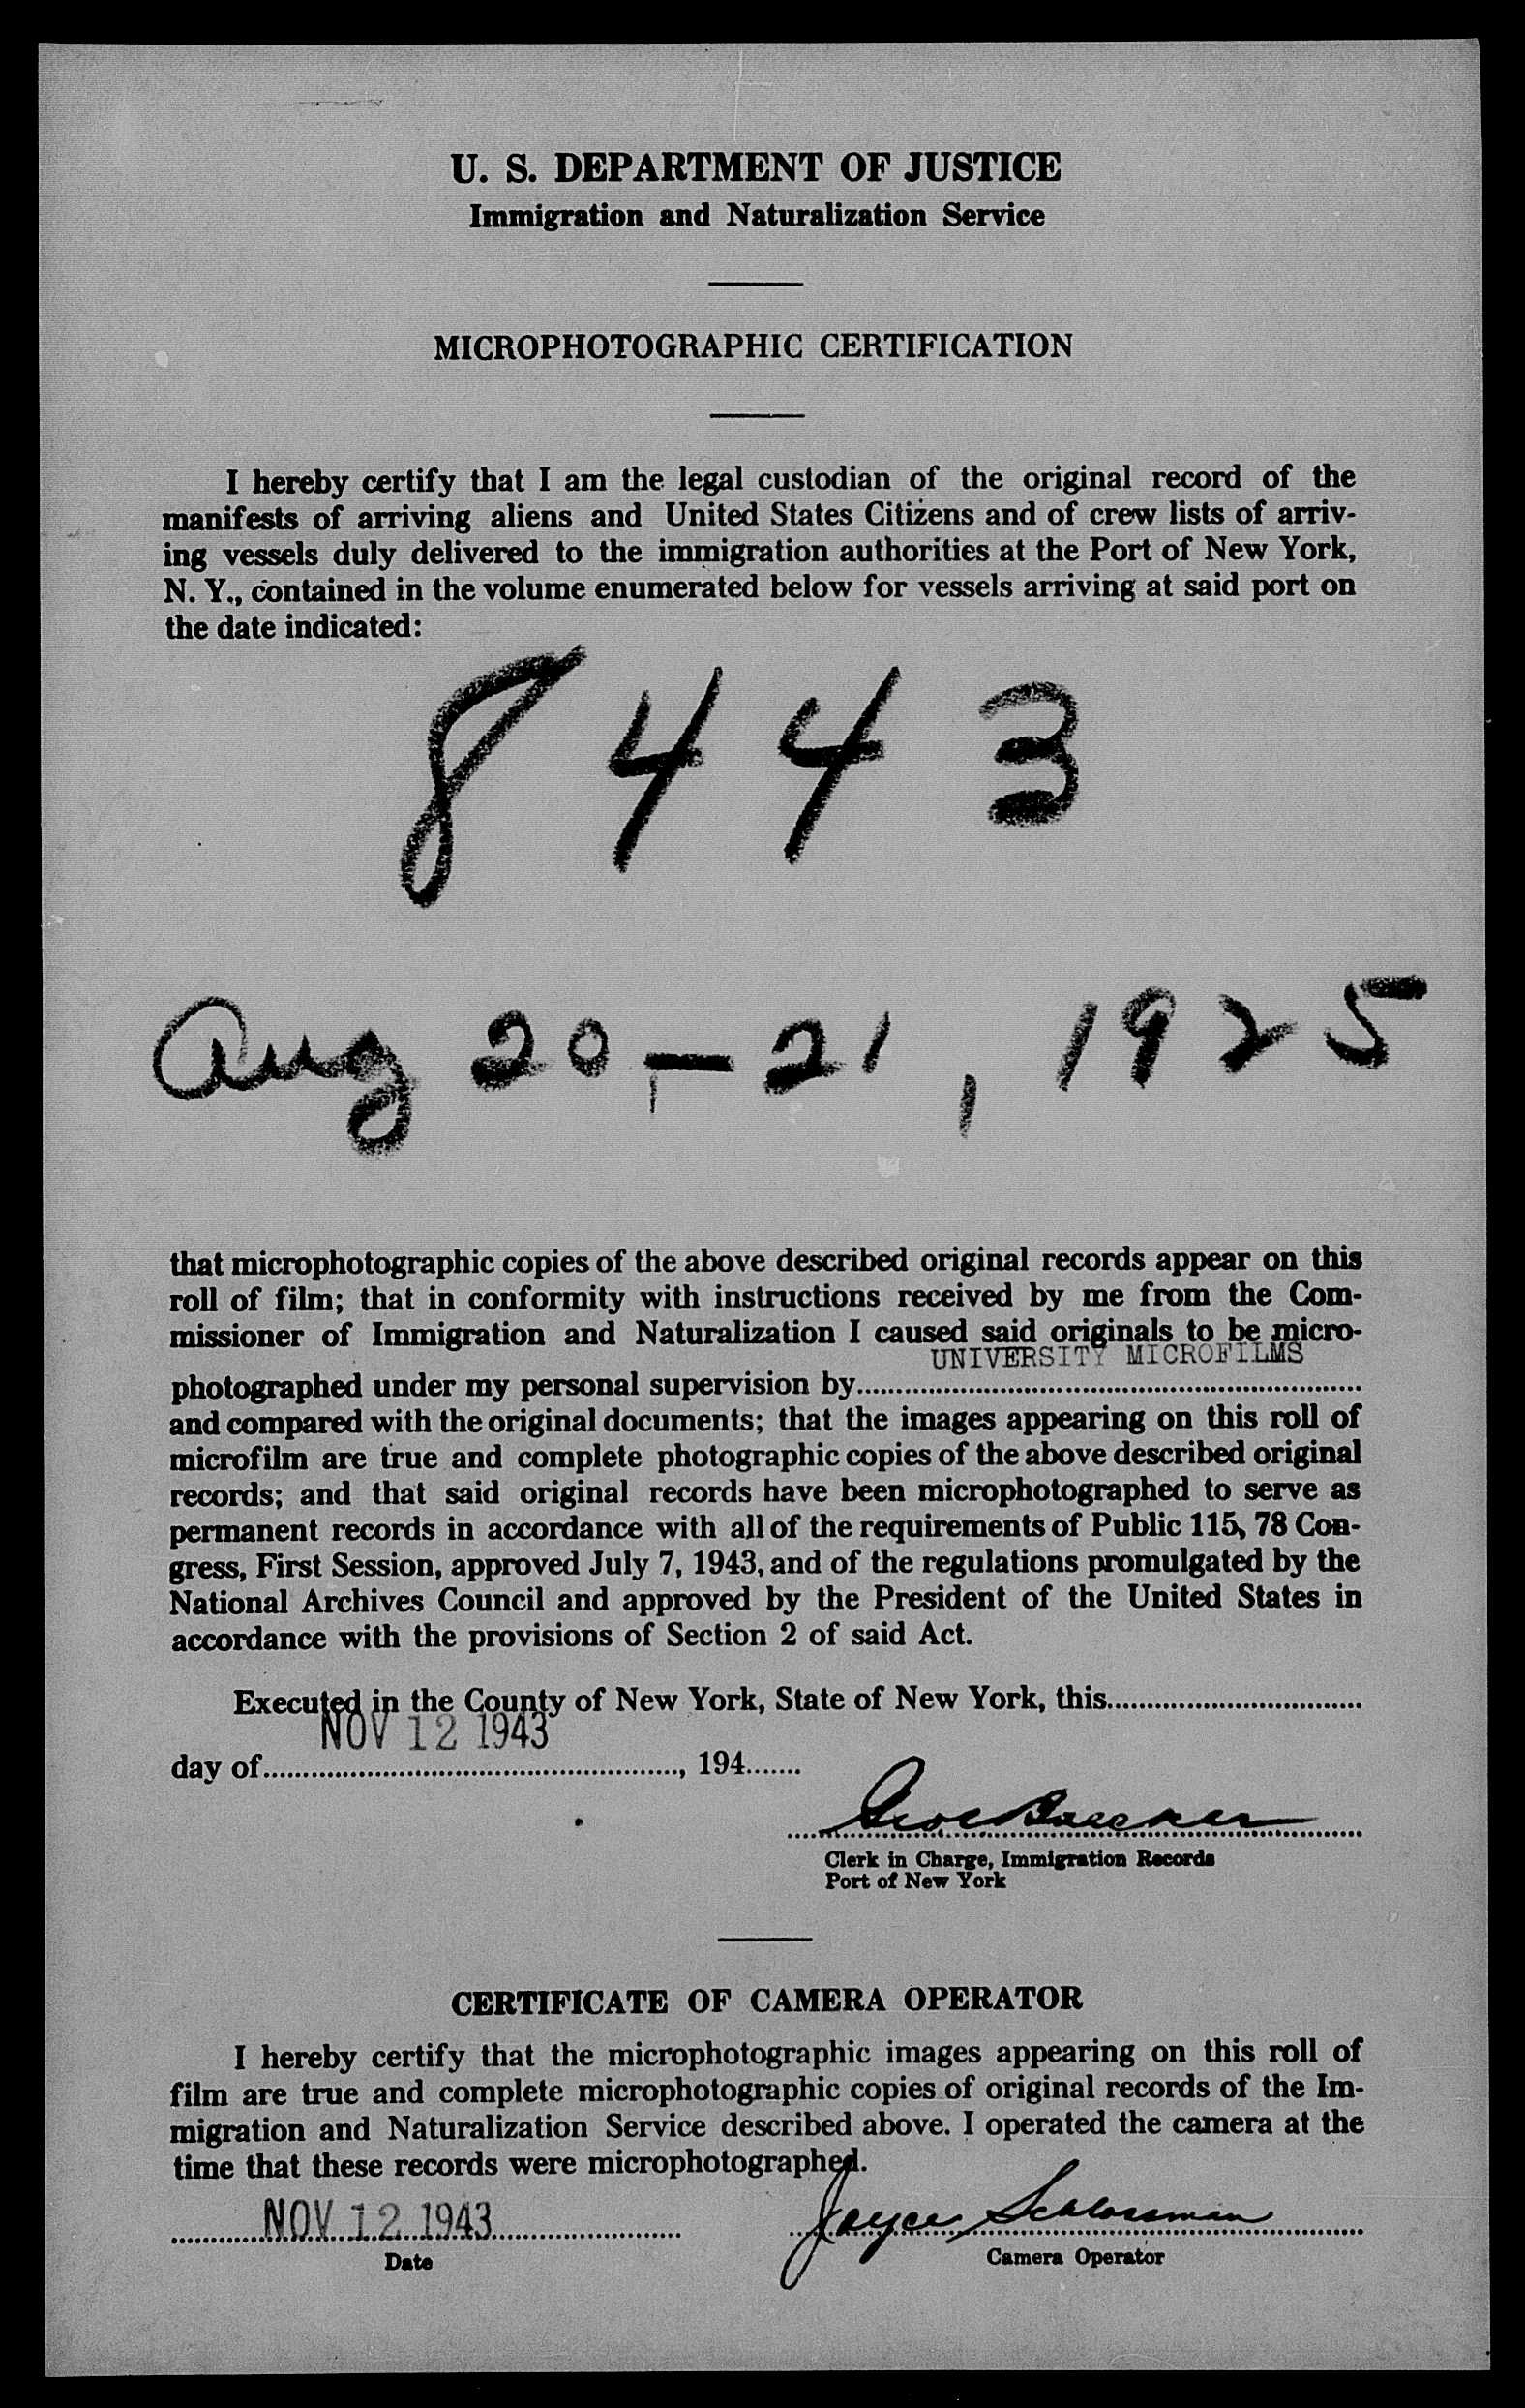 U. S. DEPARTMENT OF JUSTICE
Immigration and Naturalization Service
MICROPHOTOGRAPHIC CERTIFICATION
I hereby certify that I am the legal custodian of the original record of the
manifests of arriving aliens and United States Citizens and of crew lists of arriv-
ing vessels duly delivered to the immigration authorities at the Port of New York,
N. Y., contained in the volume enumerated below for vessels arriving at said port on
the date indicated:
8443
Aug 20-21, 1925
that microphotographic copies of the above described original records appear on this
roll of film; that in conformity with instructions received by me from the Com-
missioner of Immigration and Naturalization I caused said originals to be micro-
UNIVERSITY MICROFILMS
photographed under my personal supervision by
and compared with the original documents; that the images appearing on this roll of
microfilm are true and complete photographic copies of the above described original
records; and that said original records have been microphotographed to serve as
permanent records in accordance with all of the requirements of Public 115, 78 Con-
gress, First Session, approved July 7, 1943, and of the regulations promulgated by the
National Archives Council and approved by the President of the United States in
accordance with the provisions of Section 2 of said Act.
Executed in the County of New York, State of New York, this
NOV 12 1943
day of , 194
Clerk in Charge, Immigration Records
Port of New York
CERTIFICATE OF CAMERA OPERATOR
I hereby certify that the microphotographic images appearing on this roll of
film are true and complete microphotographic copies of original records of the Im-
migration and Naturalization Service described above. I operated the camera at the
time that these records were microphotographed.
NOV 12 1943 Joyce Schlossman
Date Camera Operator